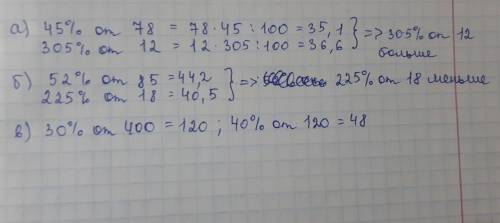 а) 45% от 78 = 78·45:100 = 35,1 } => 305% от 12 больше
305% от 12 = 12·305:100 = 36,6
б) 52% от 85 = 44,2 } => 225% от 18 меньше
225% от 18 = 40,5
в) 30% от 400 = 120 ; 40% от 120 = 48